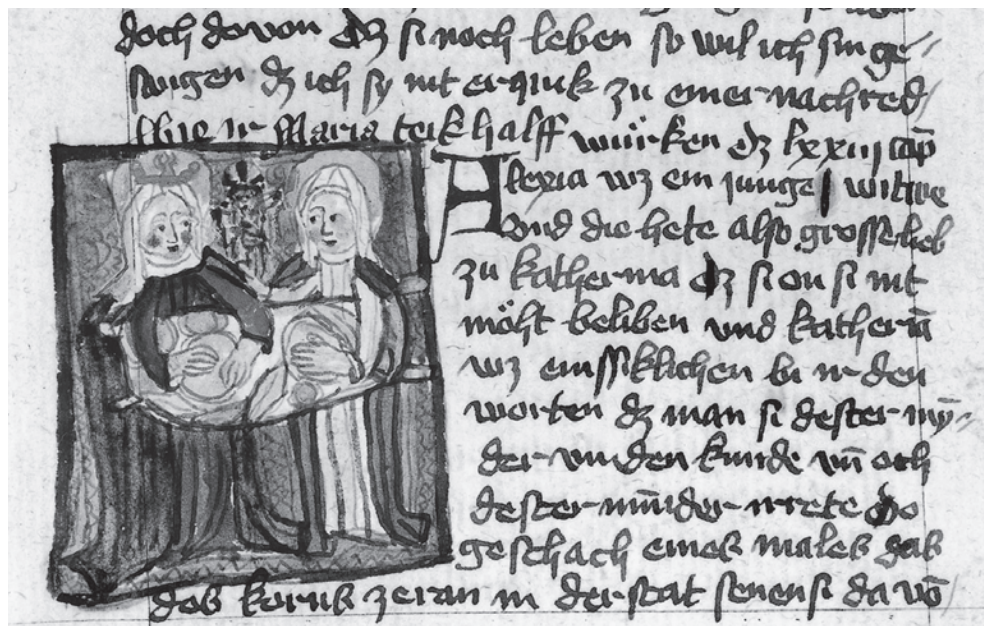 doch davon dz si noch leben so wil ich sin ge-
swigen dz ich sy nit erquik zu einer nachred
Wie ir Maria teik halff würken dz lxxiij cap̄
Alexia wz ein junge witwe
vnd die hete also grosse lieb
zu katherina dz si on si nit
möht beliben vnd katherīa
wz emssiklichen bi ir den
worten dz man si dester mȳ-
der vinden kunde vn̄ och
dester mīnder irrete do
geschach eines males das
das korns zeran in der stat senensi da vō